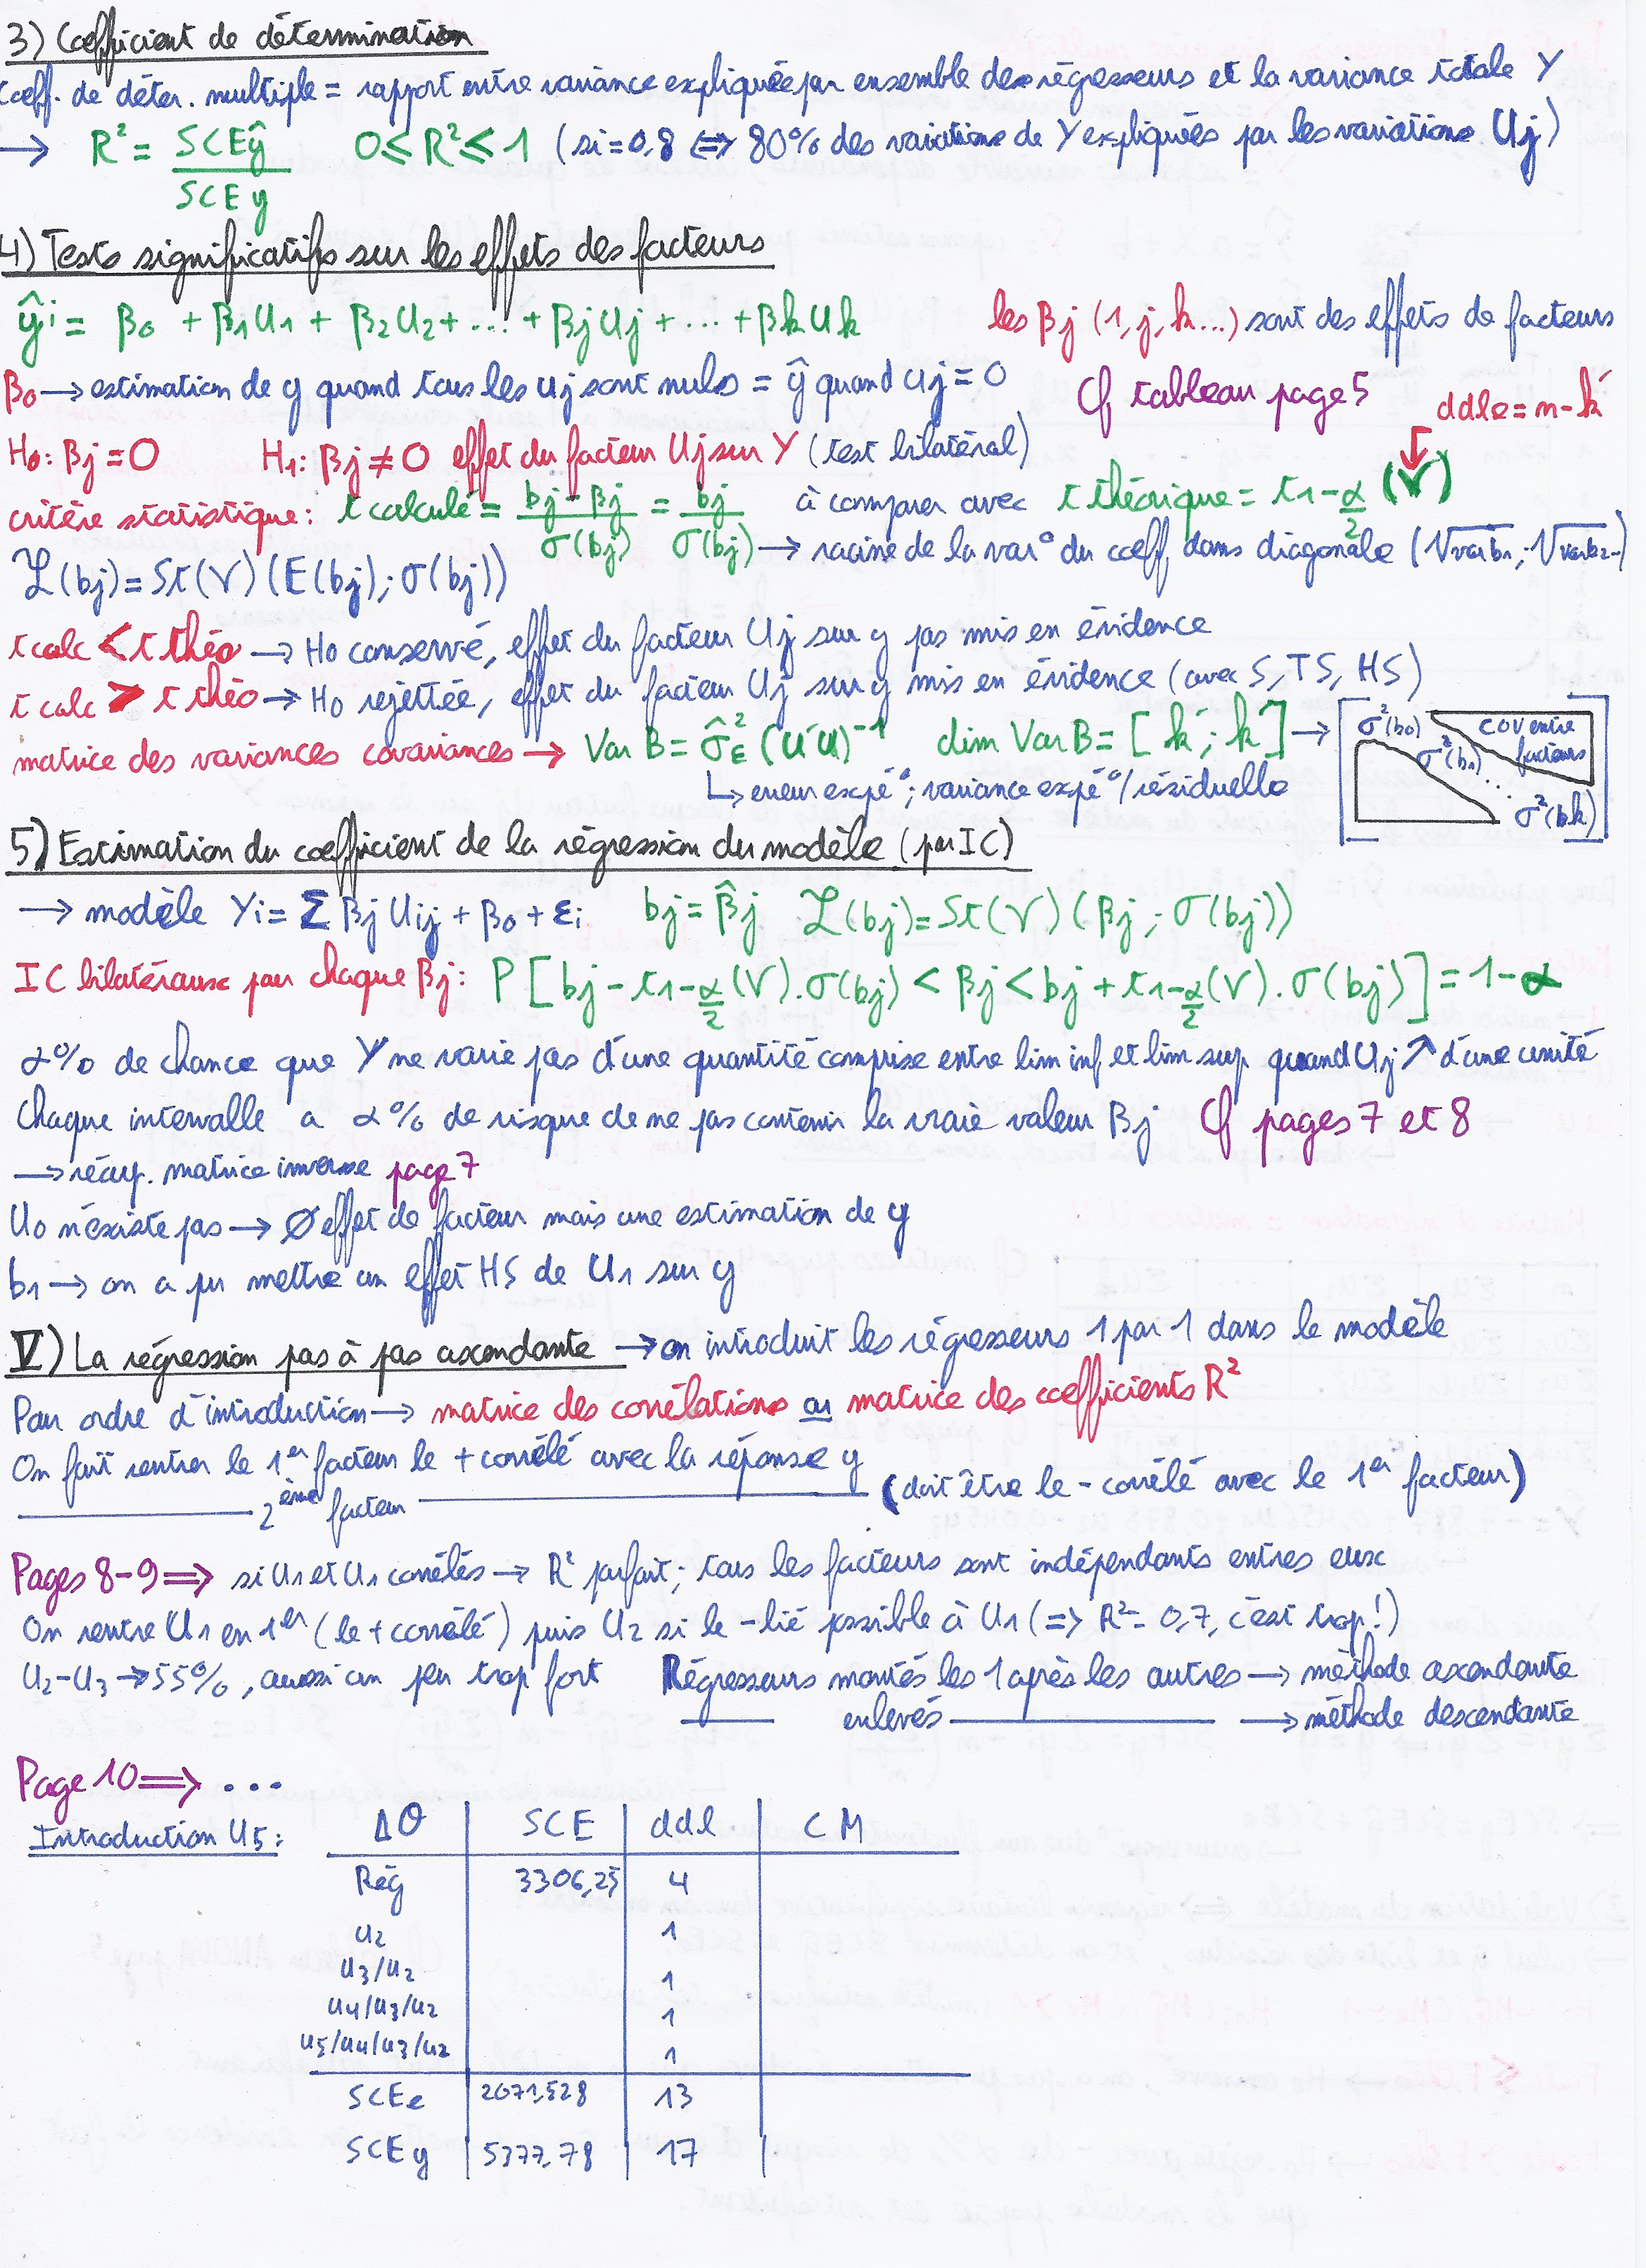 3) Coefficient de détermination
Coeff. de déter. multiple = rapport entre variance expliquée par ensemble des régresseurs et la variance totale Y
→ R² = SCEŷ / SCEy 0 ≤ R² ≤ 1 (si = 0,8 ⇔ 80% des variations de Y expliquées par les variations Uj)
4) Tests significatifs sur les effets des facteurs
ŷi = β0 + β1U1 + β2U2 + ... + βjUj + ... + βkUk les βj (1, j, k...) sont des effets de facteurs
β0 → estimation de y quand tous les uj sont nuls = ŷ quand uj = 0 Cf tableau page 5 ddle = n - k'
H0: βj = 0 H1: βj ≠ 0 effet du facteur Uj sur Y (test bilatéral)
critère statistique: t calculé = (bj - βj) / σ(bj) = bj / σ(bj) à comparer avec t théorique = t1-α/2 (V)
→ racine de la var° du coeff. dans diagonale (√var b1; √var b2...)
ℒ(bj) = St(V) (E(bj); σ(bj))
t calc < t théo → H0 conservé, effet du facteur Uj sur y pas mis en évidence
t calc > t théo → H0 rejettée, effet du facteur Uj sur y mis en évidence (avec S, TS, HS)
matrice des variances covariances → Var B = σ̂ε² (U'U)⁻¹ dim Var B = [k'; k'] → σ²(b0) σ²(b1) ... σ²(bk) cov entre facteurs
↳ erreur expé°; variance expé°/résiduelle
5) Estimation du coefficient de la régression du modèle (par IC)
→ modèle Yi = Σ βj Uij + β0 + εi bj = β̂j ℒ(bj) = St(V) (βj; σ(bj))
IC bilatéraux pour chaque βj: P [bj - t1-α/2 (V) . σ(bj) < βj < bj + t1-α/2 (V) . σ(bj)] = 1 - α
α% de chance que Y ne varie pas d'une quantité comprise entre lim inf et lim sup quand Uj ↗ d'une unité
Chaque intervalle a α% de risque de ne pas contenir la vraie valeur βj Cf pages 7 et 8
→ récup. matrice inverse page 7
U0 n'existe pas → ∅ effet de facteur mais une estimation de y
b1 → on a pu mettre un effet HS de U1 sur y
V) La régression pas à pas ascendante → on introduit les régresseurs 1 par 1 dans le modèle
Pour ordre d'introduction → matrice des corrélations ou matrice des coefficients R²
On fait rentrer le 1er facteur le + corrélé avec la réponse y
2ème facteur (doit être le - corrélé avec le 1er facteur)
Pages 8-9 ⇒ si U1 et U1 corrélés → R² parfait; tous les facteurs sont indépendants entres eux
On rentre U1 en 1er (le + corrélé) puis U2 si le - lié possible à U1 (=> R² = 0,7, c'est trop!)
U2-U3 → 55%, aussi un peu trop fort Régresseurs montés les 1 après les autres → méthode ascendante
enlevés → méthode descendante
Page 10 ⇒ ...
Introduction U5: Δθ SCE ddl CM
Rég 3306,25 4
U2 1
U3/U2 1
U4/U3/U2 1
U5/U4/U3/U2 1
SCEe 2071,528 13
SCEy 5377,78 17